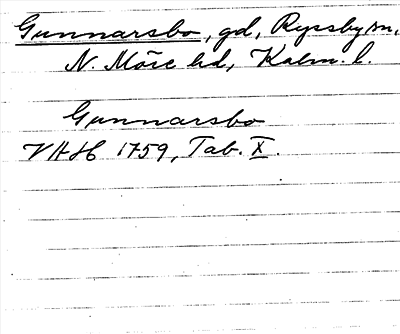 Gunnarsbo, gd, Ryssby sn,
N. Möre hd, Kalm. l.
Gunnarsbo
VHH 1759, Tab. X.